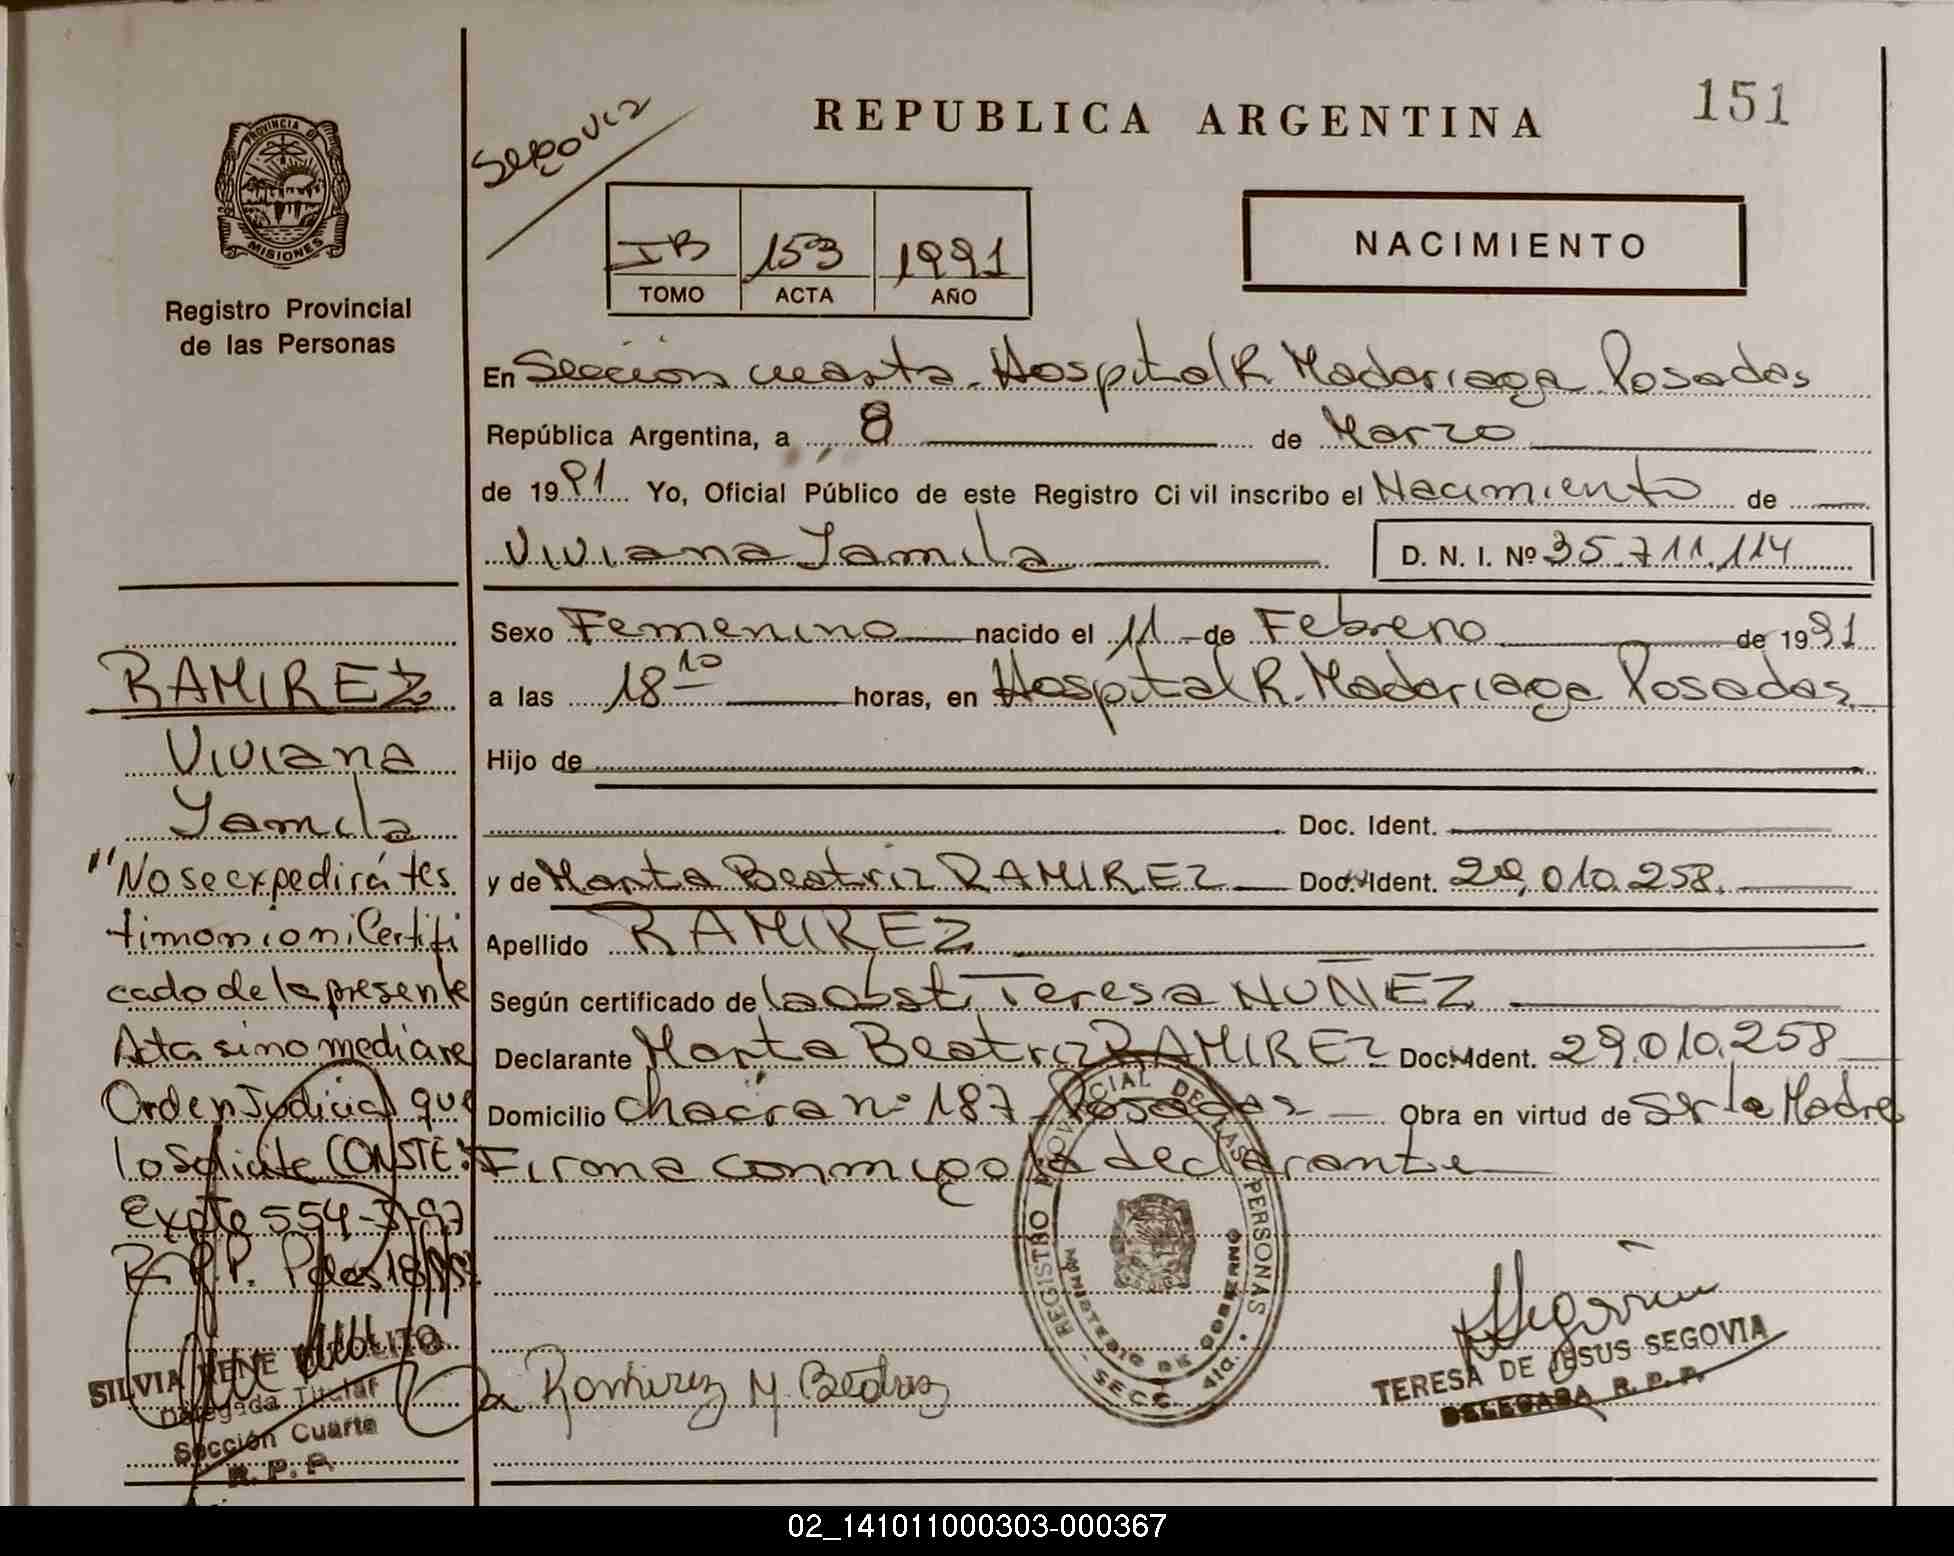 151
REPUBLICA ARGENTINA
Segovia
PROVINCIA DE
MISIONES
Registro Provincial
de las Personas
IB 153 1991
TOMO ACTA AÑO
NACIMIENTO
En Sección cuarta. Hospital R. Madariaga Posadas
República Argentina, a 8 de Marzo
de 1991 Yo, Oficial Público de este Registro Civil inscribo el Nacimiento de
Viviana Yamila D. N. I. Nº 35.711.114
Sexo Femenino nacido el 11 de Febrero de 1991
a las 18 10 horas, en Hospital R. Madariaga Posadas
Hijo de
Doc. Ident.
y de Marta Beatriz RAMIREZ Doc. Ident. 29.010.258.
Apellido RAMIREZ
Según certificado de la obst. Teresa NUÑEZ
Declarante Marta Beatriz RAMIREZ Doc. Ident. 29.010.258
Domicilio Chacra nº 187 Posadas Obra en virtud de Ser la Madre
Firma conmigo la declarante
RAMIREZ
Viviana
Yamila
"No se expedirá tes
timonio ni Certifi
cado de la presente
Acta si no mediare
Orden Judicial que
lo Solicite CONSTE:
Expte 554-
R.P.P. Pdas 18
SILVIA IRENE
Delegada Titular
Sección Cuarta
R. P. P.
Ramirez M. Beatriz
REGISTRO PROVINCIAL DE LAS PERSONAS
MINISTERIO DE GOBIERNO
SECC. 4ta.
TERESA DE JESUS SEGOVIA
DELEGADA R. P. P.
02_141011000303-000367